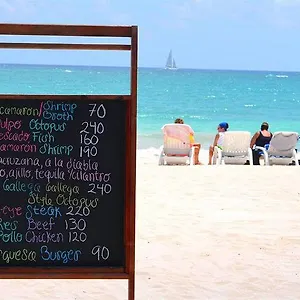 camarón/Shrimp Broth 70
Pulpo Octopus 240
Pescado Fish 160
Camarón Shrimp 190
Veracruzana, a la diabla
ajo, ajillo, tequila y cilantro
Gallega Gallega 240
Style Octopus
Steak 220
Res Beef 130
Pollo Chicken 120
Burger 90